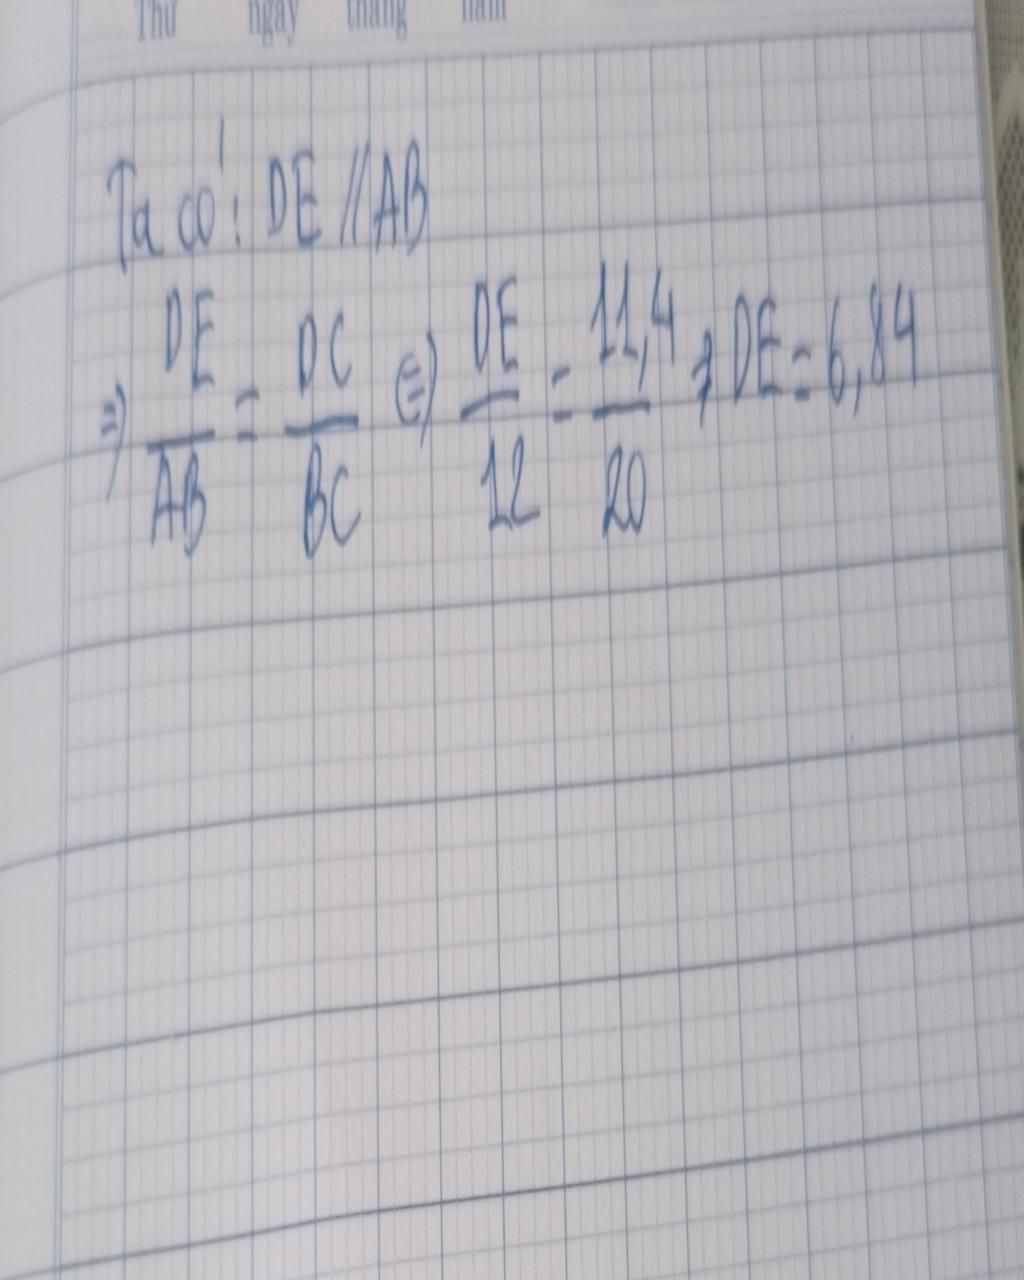 Thứ ngày tháng năm
Ta có: DE // AB
⇒ DE/AB = DC/BC ⇔ DE/12 = 11,4/20 ⇒ DE = 6,84